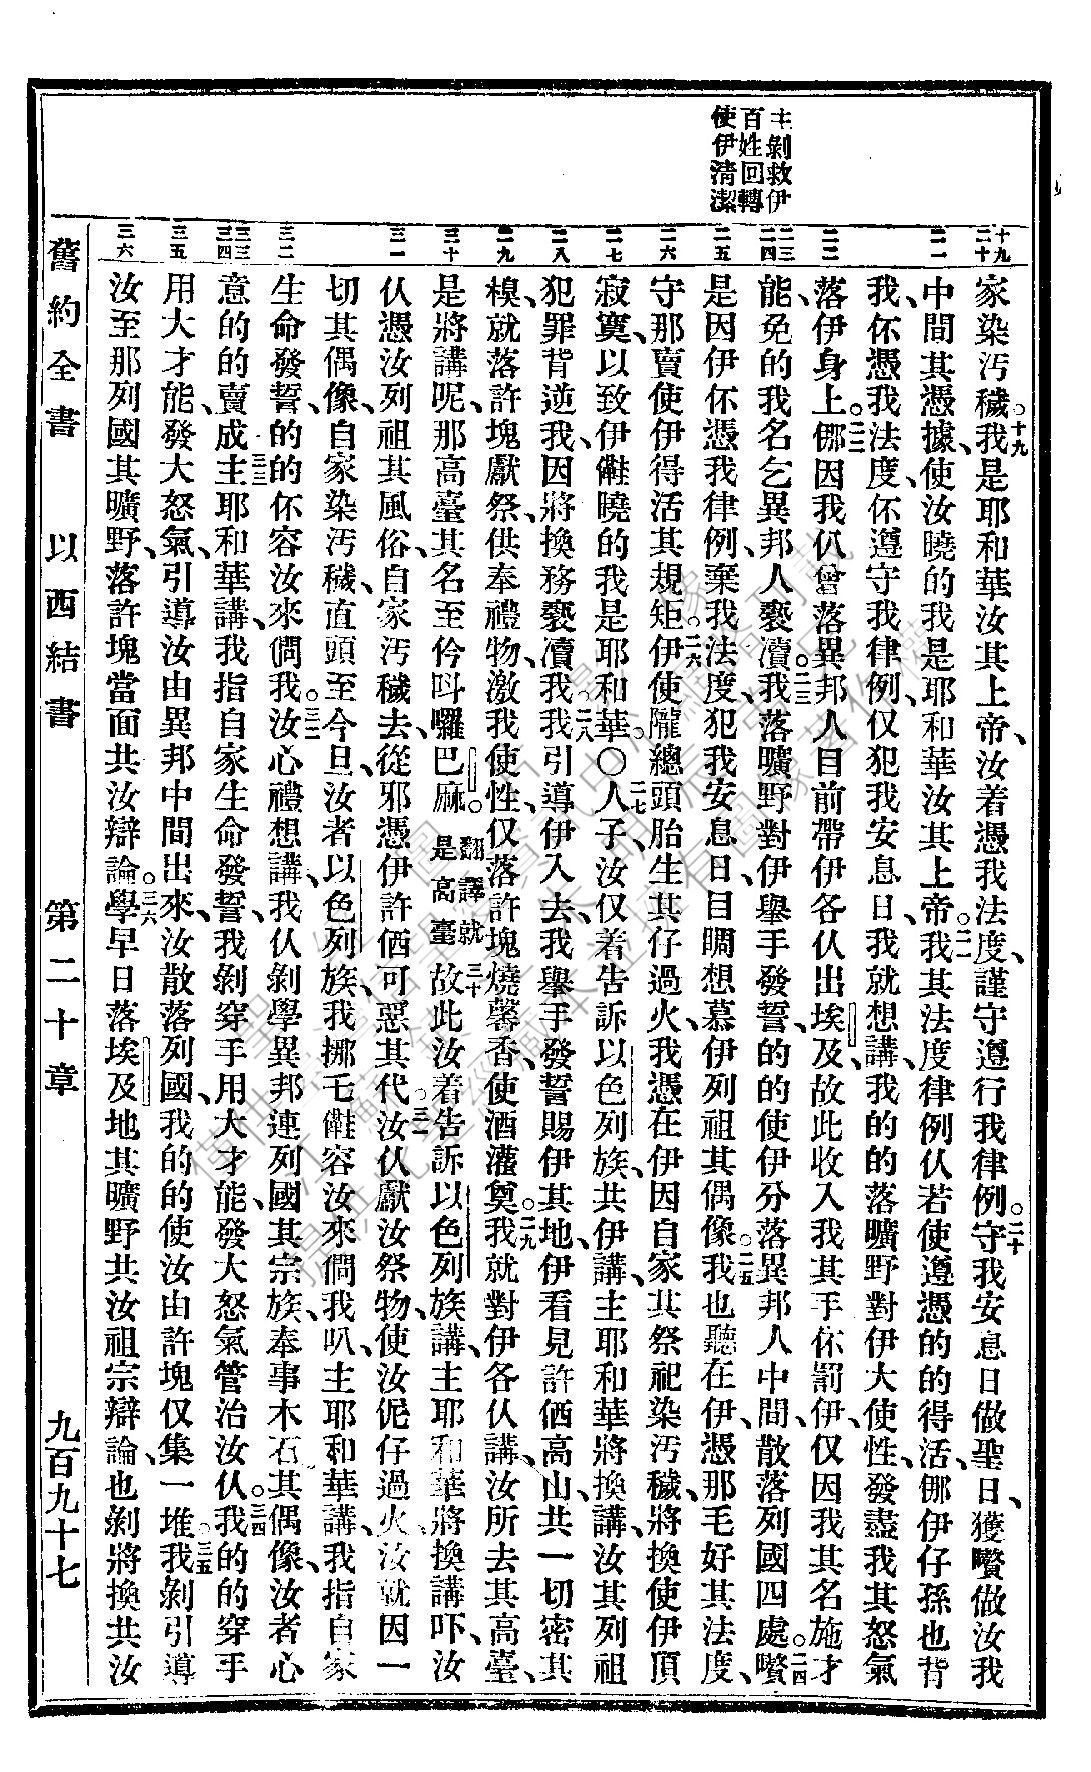 主剝救伊
百姓回轉
使伊清潔
十九
二十
二一
二二
二三
二四
二五
二六
二七
二八
二九
三十
三一
三二
三三
三四
三五
三六
家染汚穢。十九我是耶和華汝其上帝、汝着憑我法度、謹守遵行我律例。二十守我安息日做聖日、獲𧸘做汝我
中間其憑據、使汝曉的我是耶和華汝其上帝。二一我其法度律例仈若使遵憑的的得活、㑚伊仔孫也背
我、伓憑我法度、伓遵守我律例、仅犯我安息日、我就想講、我的的落曠野對伊大使性、發盡我其怒氣
落伊身上。二二㑚因我仈曾落異邦人目前帶伊各仈出埃及、故此收入我其手伓罰伊、仅因我其名施才
能、免的我名乞異邦人褻瀆。二三我落曠野對伊舉手發誓、的的使伊分落異邦人中間、散落列國四處。二四𧸘
是因伊伓憑我律例、棄我法度、犯我安息日、目睭想慕伊列祖其偶像。二五我也聽在伊、憑那乇好其法度、
守那賣使伊得活其規矩。二六伊使隴總頭胎生其仔過火、我憑在伊因自家其祭祀染汚穢、將換使伊頂
寂寞、以致伊𣍐曉的我是耶和華○二七人子、汝仅着告訴以色列族、共伊講、主耶和華將換講、汝其列祖
犯罪背逆我、因將換務褻瀆我。二八我引導伊入去我舉手發誓賜伊其地、伊看見許㑚高山、共一切密其
模、就落許塊獻祭、供奉禮物、激我使性、仅落許塊燒馨香、使酒灌奠。二九我就對伊各仈講、汝所去其高臺、
是將講呢、那高臺其名至伶叫囉巴麻。翻譯就是高臺三十故此汝着告訴以色列族講、主耶和華將換講吓、汝
仈憑汝列祖其風俗、自家汚穢去、從邪憑伊許㑚可惡其代。三一汝仈獻汝祭物、使汝伲仔過火、汝就因一
切其偶像、自家染汚穢、直頭至今旦、汝者以色列族、我挪乇𣍐容汝來倜我叭、主耶和華講、我指自家
生命發誓、的的伓容汝來倜我。三二汝心禮想講、我仈剝學異邦連列國其宗族、奉事木石其偶像、汝者心
意的的賣成。三三主耶和華講、我指自家生命發誓、我剝穿手用大才能、發大怒氣管治汝仈。三四我的的穿手
用大才能、發大怒氣、引導汝由異邦中間出來、汝散落列國、我的的使汝由許塊仅集一堆。三五我剝引導
汝至那列國其曠野、落許塊當面共汝辯論。三六學早日落埃及地其曠野共汝祖宗辯論、也剝將換共汝
舊約全書 以西結書 第二十章 九百九十七